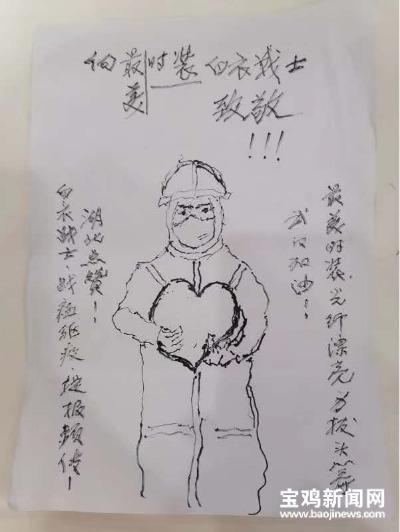 向最美时装白衣战士
致敬
!!!
最美时装、光纤漂亮力拔头筹
武汉加油！
湖北点赞！
白衣战士、战瘟疫、捷报频传！
宝鸡新闻网
www.baojinews.com